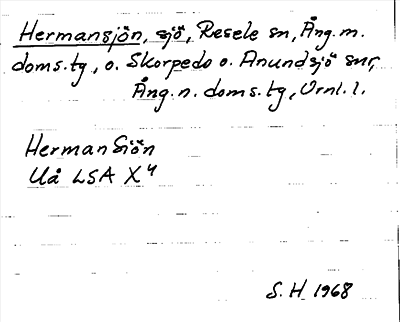 Hermansjön, sjö, Resele sn, Ång. m.
doms.tg, o. Skorpedo o. Anundsjö snr,
Ång. n. doms.tg, Vrnl. l.
Herman Siön
Uå LSA X 4
S. H 1968